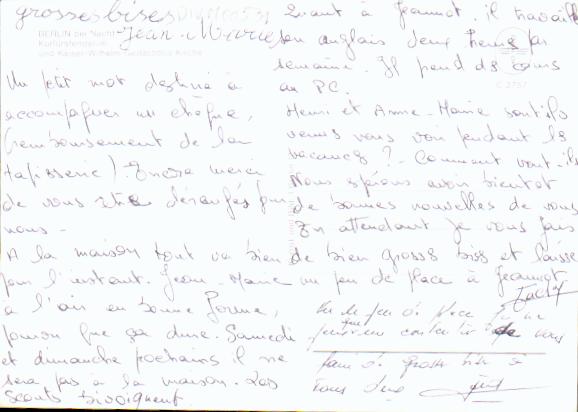 grosses bises
Jean-Marie
BERLIN bei Nacht
Kurfürstendamm
und Kaiser-Wilhelm-Gedächtnis-Kirche
Un petit mot destiné à
accompagner un chèque,
(remboursement de la
tapisserie). Encore merci
de vous être dérangés pour
nous -
A la maison tout va bien
pour l'instant. Jean-Marie
a l'air en bonne forme,
pourvu que ça dure. Samedi
et dimanche prochains il ne
sera pas à la maison. Les
scouts bivoiquent.
Quant à Jeannot, il travaille
son anglais deux heures par
semaine. Il prend des cours
au PC.
Henri et Anne-Marie sont ils
venus vous voir pendant les
vacances ? - Comment vont-ils
Nous espérons avoir bientôt
de bonnes nouvelles de vous
En attendant je vous fais
de bien grosses bises et laisse
un peu de place à Jeannot
Vu le peu de place je ne
peux que me contenter de vous
faire de grosses bises à
tous deux